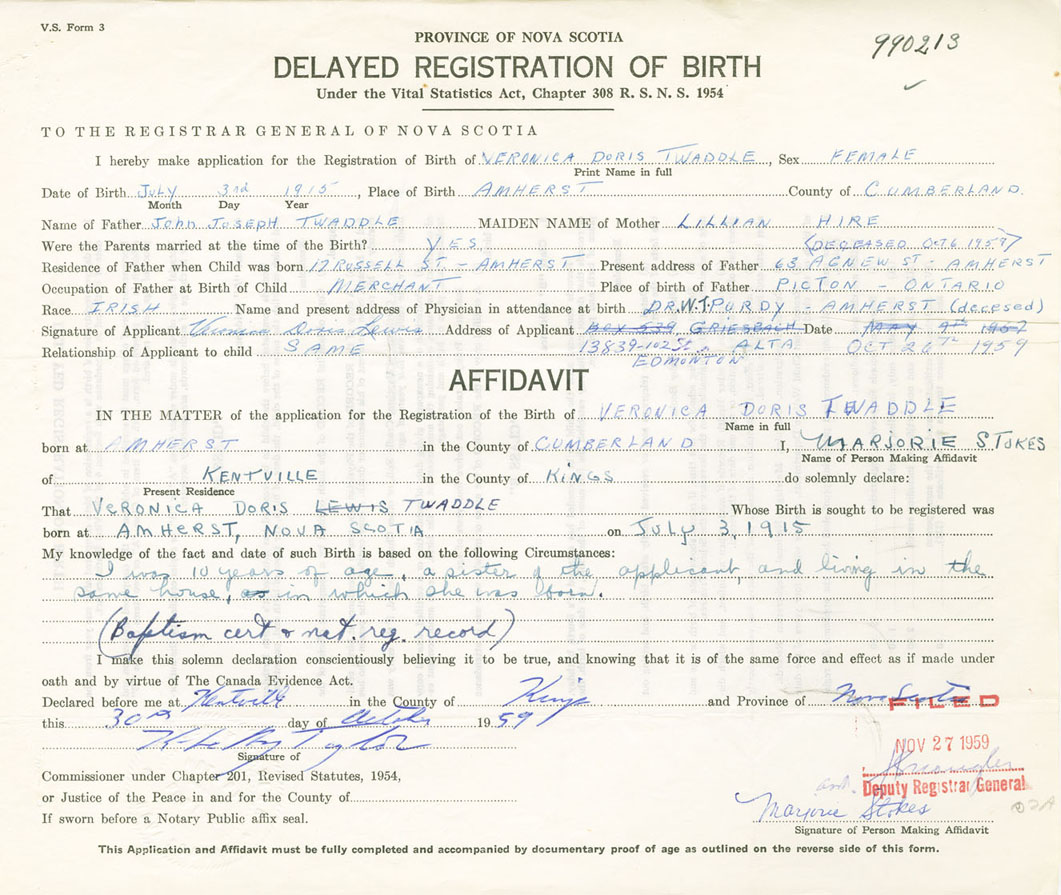 V.S. Form 3
990213
PROVINCE OF NOVA SCOTIA
DELAYED REGISTRATION OF BIRTH
Under the Vital Statistics Act, Chapter 308 R. S. N. S. 1954
TO THE REGISTRAR GENERAL OF NOVA SCOTIA
I hereby make application for the Registration of Birth of VERONICA DORIS TWADDLE, Sex FEMALE
Print Name in full
Date of Birth July 3rd 1915, Place of Birth AMHERST County of CUMBERLAND.
Month Day Year
Name of Father John Joseph TWADDLE MAIDEN NAME of Mother LILLIAN HIRE
Were the Parents married at the time of the Birth? YES (DECEASED OCT 6 1959)
Residence of Father when Child was born 17 RUSSELL ST - AMHERST Present address of Father 63 AGNEW ST - AMHERST
Occupation of Father at Birth of Child MERCHANT Place of birth of Father PICTON - ONTARIO
Race IRISH Name and present address of Physician in attendance at birth DR. W.T. PURDY - AMHERST (decesed)
Signature of Applicant Veronica Doris Lewis Address of Applicant BOX 539, GRIESBACH Date MAY 9th 1957
Relationship of Applicant to child SAME 13839-102 St., ALTA OCT 26TH 1959
EDMONTON
AFFIDAVIT
IN THE MATTER of the application for the Registration of the Birth of VERONICA DORIS TWADDLE
Name in full
born at AMHERST in the County of CUMBERLAND I, MARJORIE STOKES
Name of Person Making Affidavit
of KENTVILLE in the County of KINGS do solemnly declare:
Present Residence
That VERONICA DORIS LEWIS TWADDLE Whose Birth is sought to be registered was
born at AMHERST, NOVA SCOTIA on July 3, 1915
My knowledge of the fact and date of such Birth is based on the following Circumstances:
I was 10 years of age, a sister of the applicant, and living in the
same house, as in which she was born.
(Baptism cert & nat. reg. record)
I make this solemn declaration conscientiously believing it to be true, and knowing that it is of the same force and effect as if made under
oath and by virtue of The Canada Evidence Act.
Declared before me at Kentville in the County of Kings and Province of Nova Scotia
FILED
this 30th day of October 1959
NOV 27 1959
Taylor
Signature of
Commissioner under Chapter 201, Revised Statutes, 1954,
Deputy Registrar General
or Justice of the Peace in and for the County of
Marjorie Stokes
If sworn before a Notary Public affix seal.
Signature of Person Making Affidavit
This Application and Affidavit must be fully completed and accompanied by documentary proof of age as outlined on the reverse side of this form.